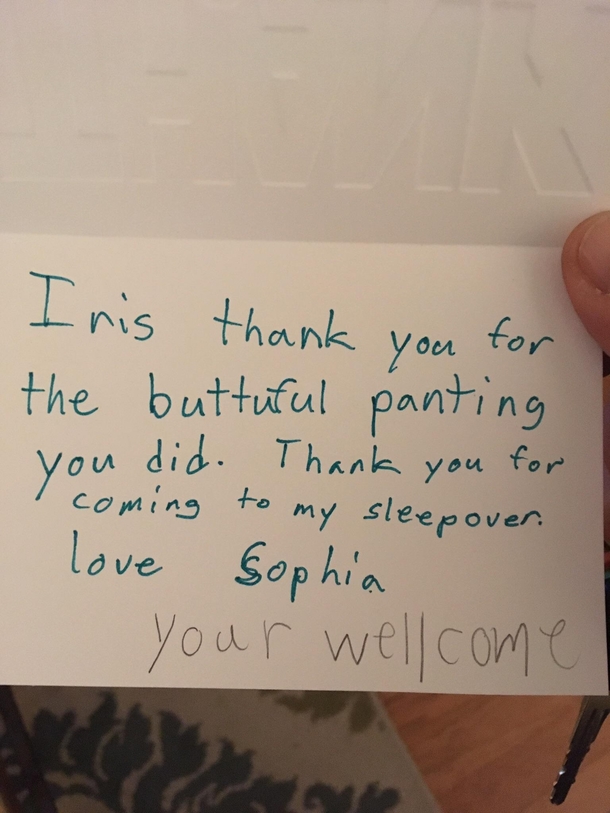 Iris thank you for
the buttuful panting
you did. Thank you for
coming to my sleepover.
love Sophia
your wellcome